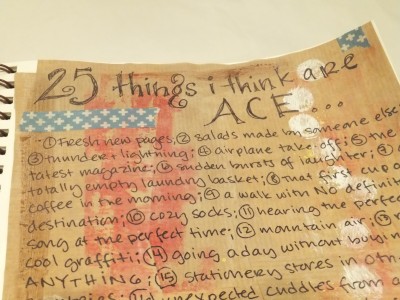 25 things i think are
ACE...
① Fresh new pages, ② salads made by someone else
③ thunder + lightning; ④ airplane take off; ⑤ the
latest magazine; ⑥ sudden bursts of laughter; ⑦ a
totally empty laundry basket; ⑧ that first cup o
coffee in the morning; ⑨ a walk with NO defini
destination; ⑩ cozy socks; ⑪ hearing the perfe
song at the perfect time; ⑫ mountain air; ⑬ r
cool graffiti; ⑭ going a day without buyi n
ANYTHING; ⑮ stationery stores in oth
unexpected cuddles from a